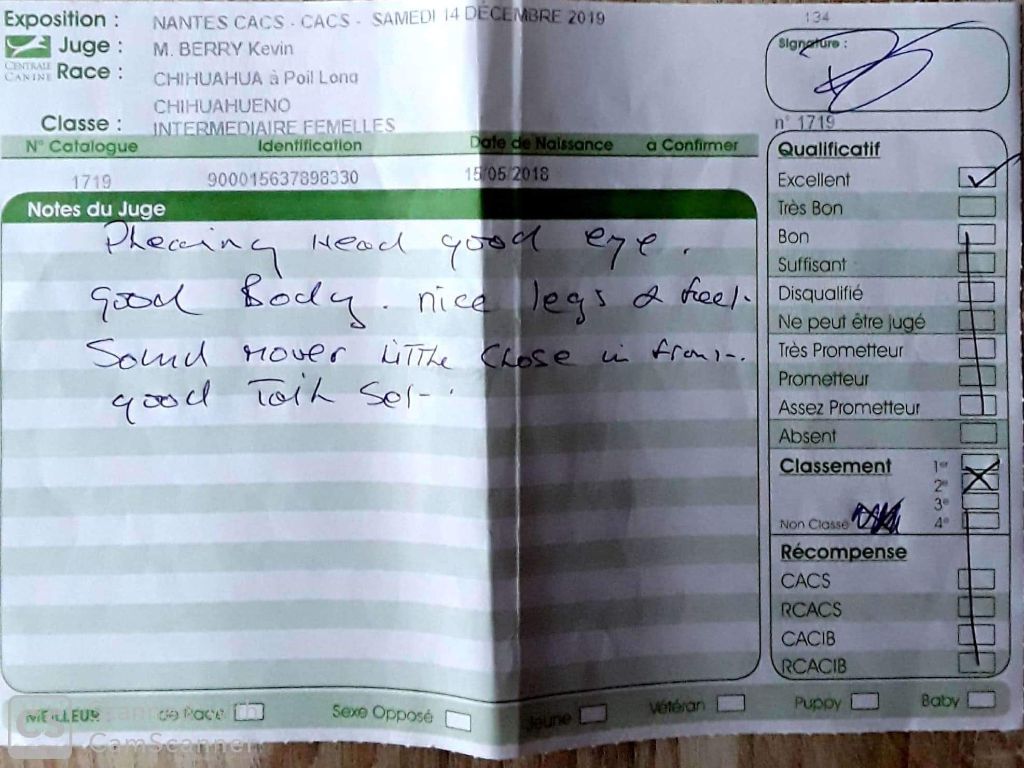 Exposition : NANTES CACS - CACS - SAMEDI 14 DÉCEMBRE 2019
134
Juge : M. BERRY Kevin
CENTRALE CANINE
Race : CHIHUAHUA à Poil Long
CHIHUAHUENO
Classe : INTERMEDIAIRE FEMELLES
Signature :
n° 1719
N° Catalogue Identification Date de Naissance à Confirmer
1719 900015637898330 15/05/2018
Notes du Juge
Pleasing Head good eye.
good Body. nice legs & feet.
Sound mover Little Close in front.
good Tail Set.
Qualificatif
Excellent
Très Bon
Bon
Suffisant
Disqualifié
Ne peut être jugé
Très Prometteur
Prometteur
Assez Prometteur
Absent
Classement 1er
2e
3e
Non Classé 4e
Récompense
CACS
RCACS
CACIB
RCACIB
MEILLEUR de Race Sexe Opposé Jeune Vétéran Puppy Baby
CS
Scanned with
CamScanner